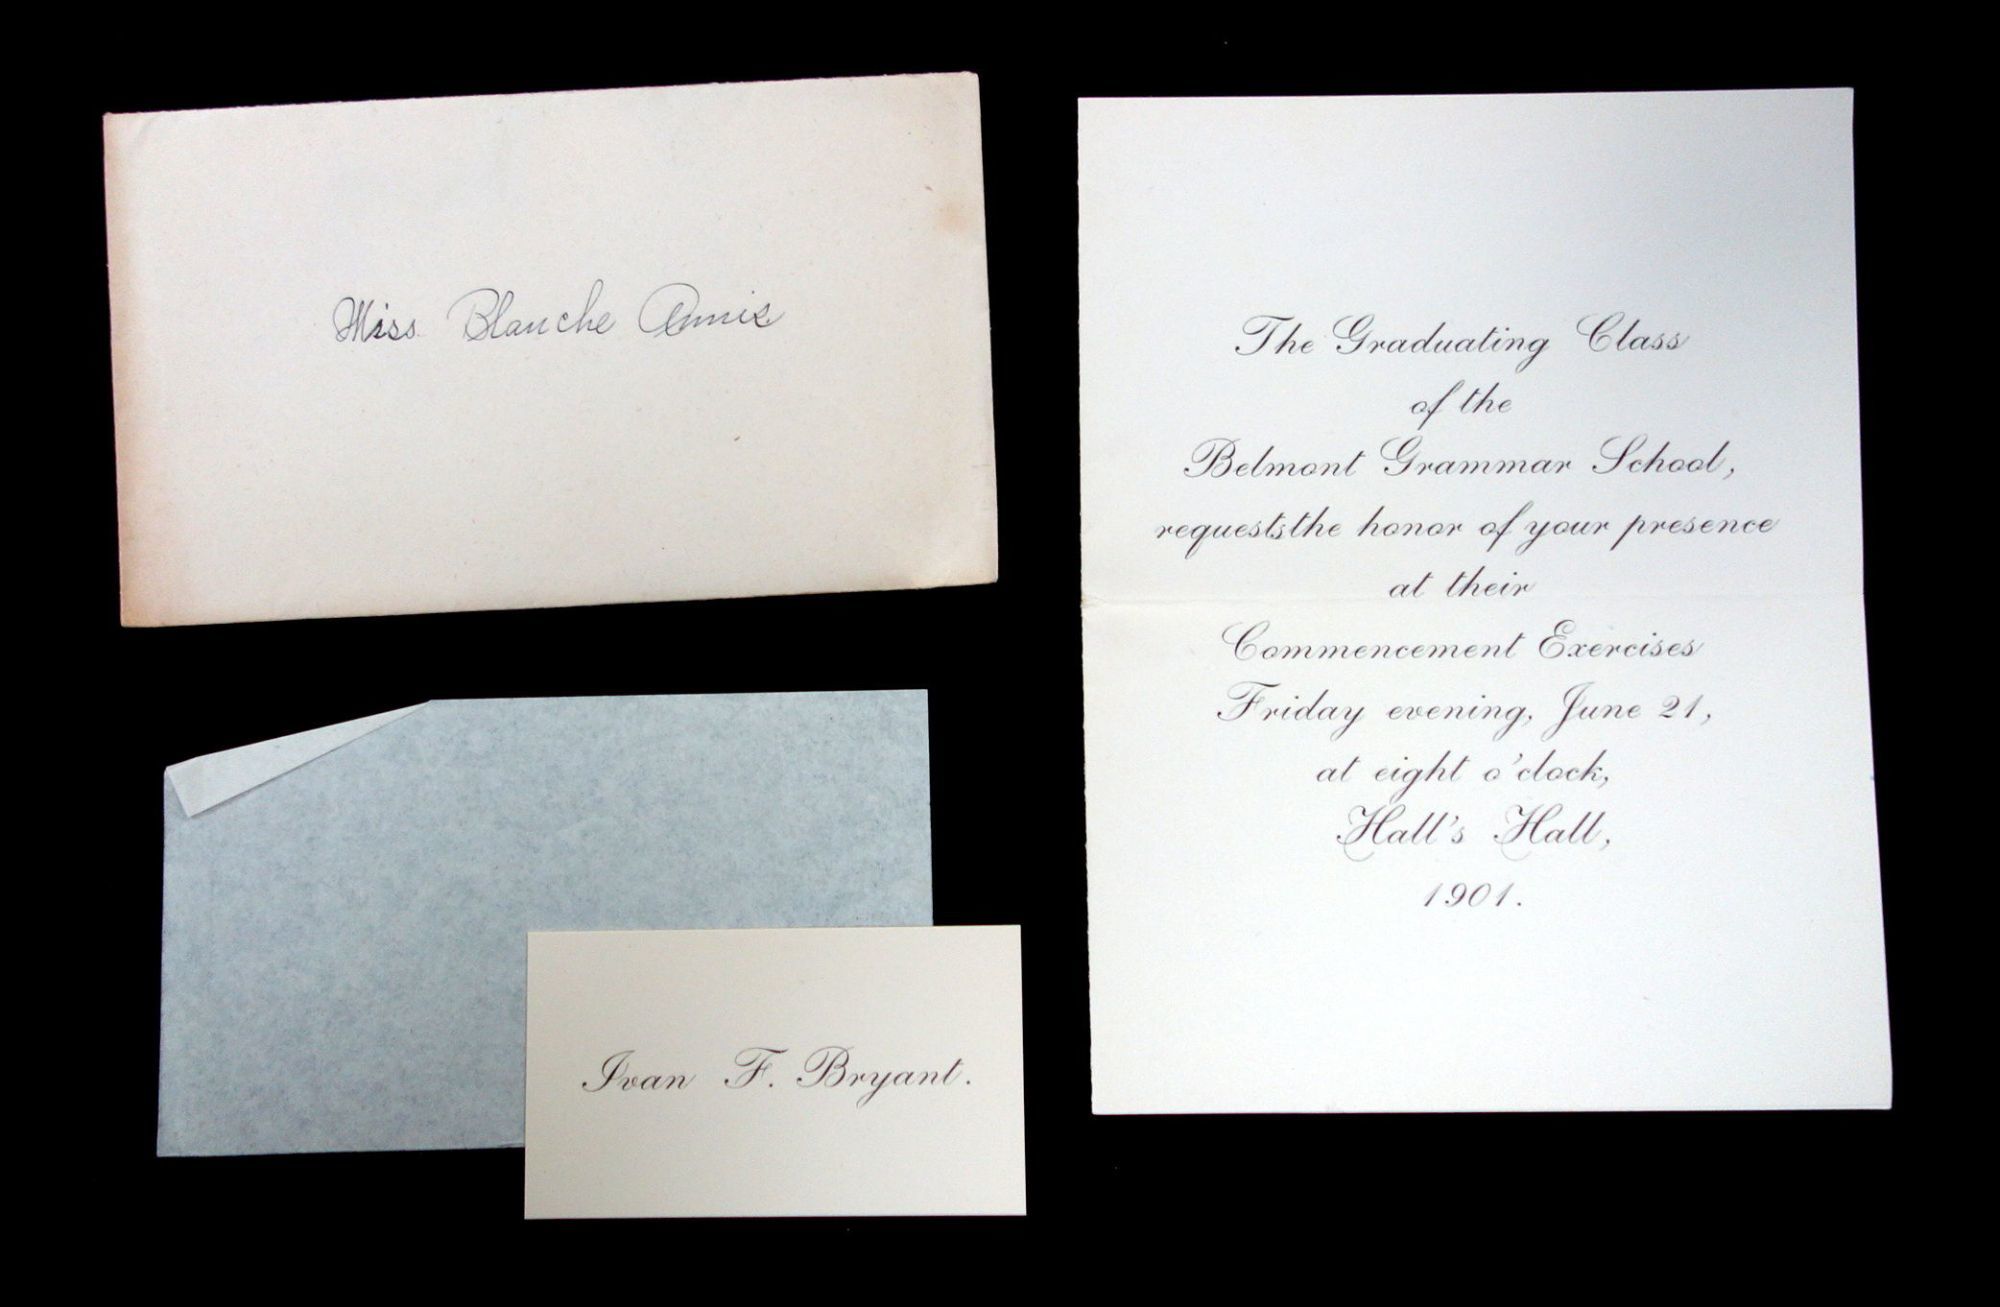 Miss Blanche Annis
The Graduating Class
of the
Belmont Grammar School,
requests the honor of your presence
at their
Commencement Exercises
Friday evening, June 21,
at eight o'clock,
Hall's Hall,
1901.
Ivan F. Bryant.